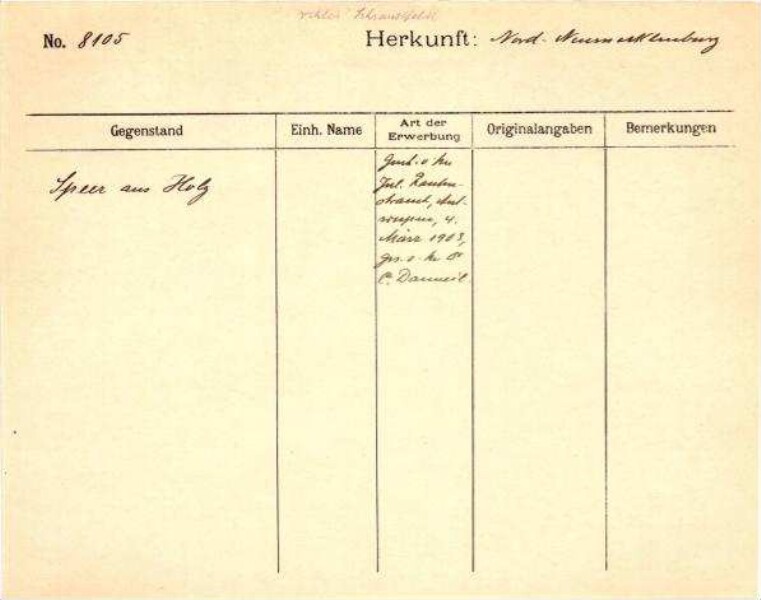 No. 8105
Herkunft: Nord-Neumecklenburg
Gegenstand
Einh. Name
Art der Erwerbung
Originalangaben
Bemerkungen
Speer aus Holz
Gesch. v. Hrn
Jul. Rauten-
strauch, Ant-
werpen, 4.
März 1903,
ges. v. Hr. Dr
C. Danneil